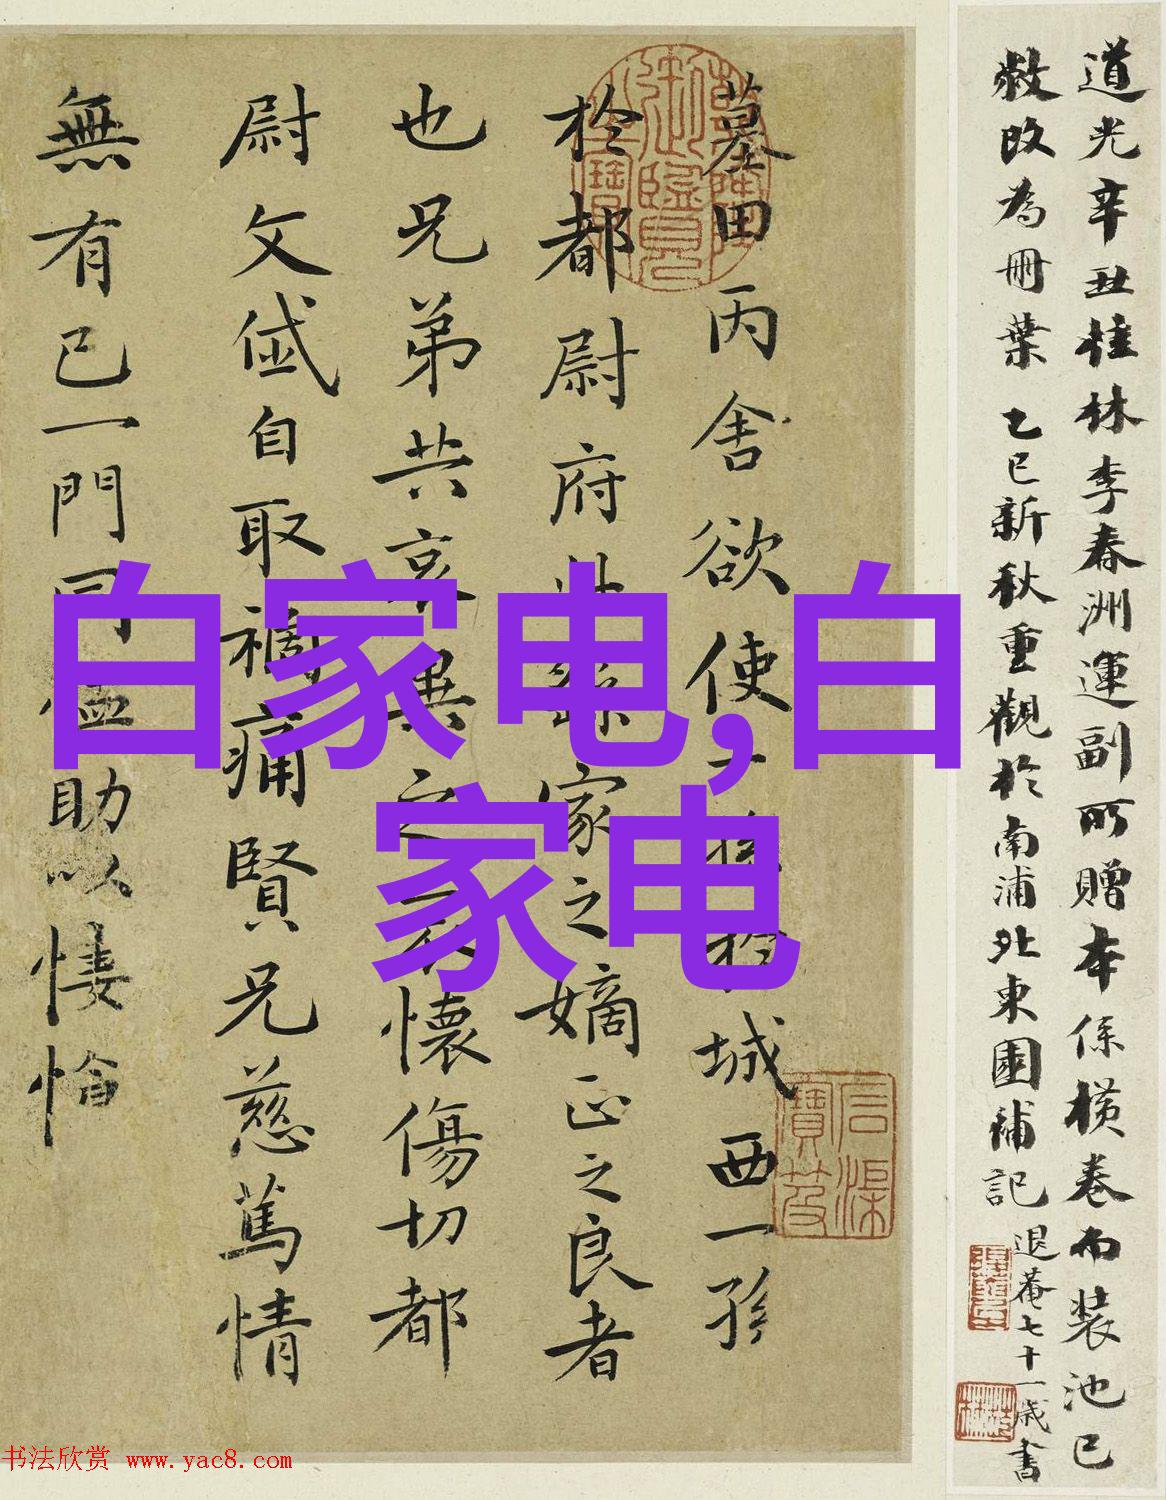 道光辛丑桂林李春洲運副所贈本係橫卷而裝池已
敝改為冊葉乙巳新秋重觀於南浦北東園補記退菴七十一歲書
墓田丙舍欲使一孫於城西一孫
於都尉府此繇家之嫡正之良者
也兄弟共哀異之哀懷傷切都
尉文岱自取禍痛賢兄慈篤情
無有已一門同恤助以悽愴
御覽
白家电,白
家电
书法欣赏 www.yac8.com